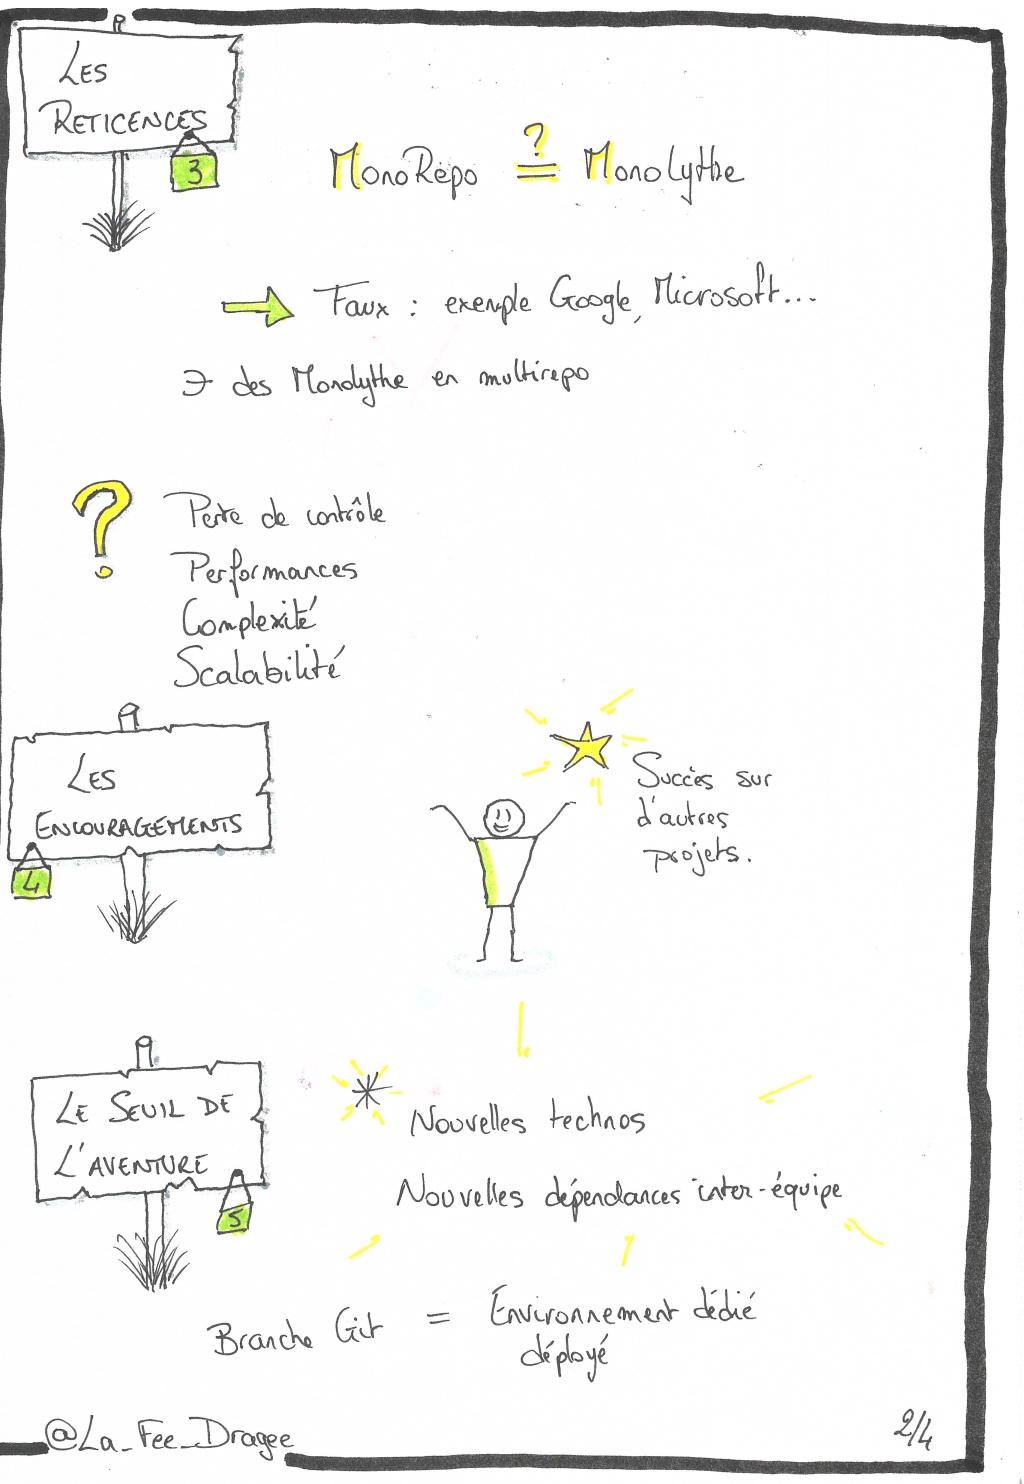 LES
RETICENCES
3
MonoRepo ?= MonoLythe
Faux : exemple Google, Microsoft...
∃ des Monolythe en multirepo
?
Perte de contrôle
Performances
Complexité
Scalabilité
LES
ENCOURAGEMENTS
4
Succès sur
d'autres
projets.
LE SEUIL DE
L'AVENTURE
5
Nouvelles technos
Nouvelles dépendances inter-équipe
Branche Git = Environnement dédié
déployé
@La_Fee_Dragee
2/4